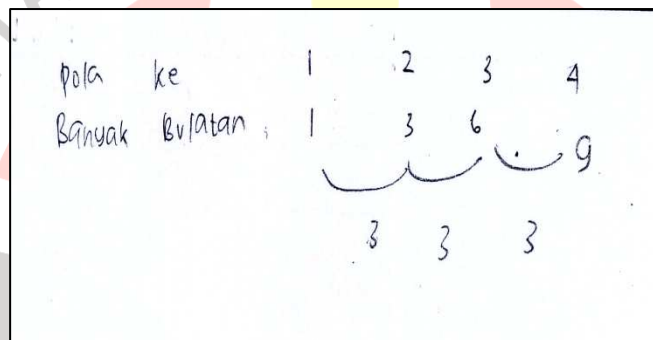 Pola ke 1 2 3 4
Banyak Bulatan : 1 3 6 9
3 3 3